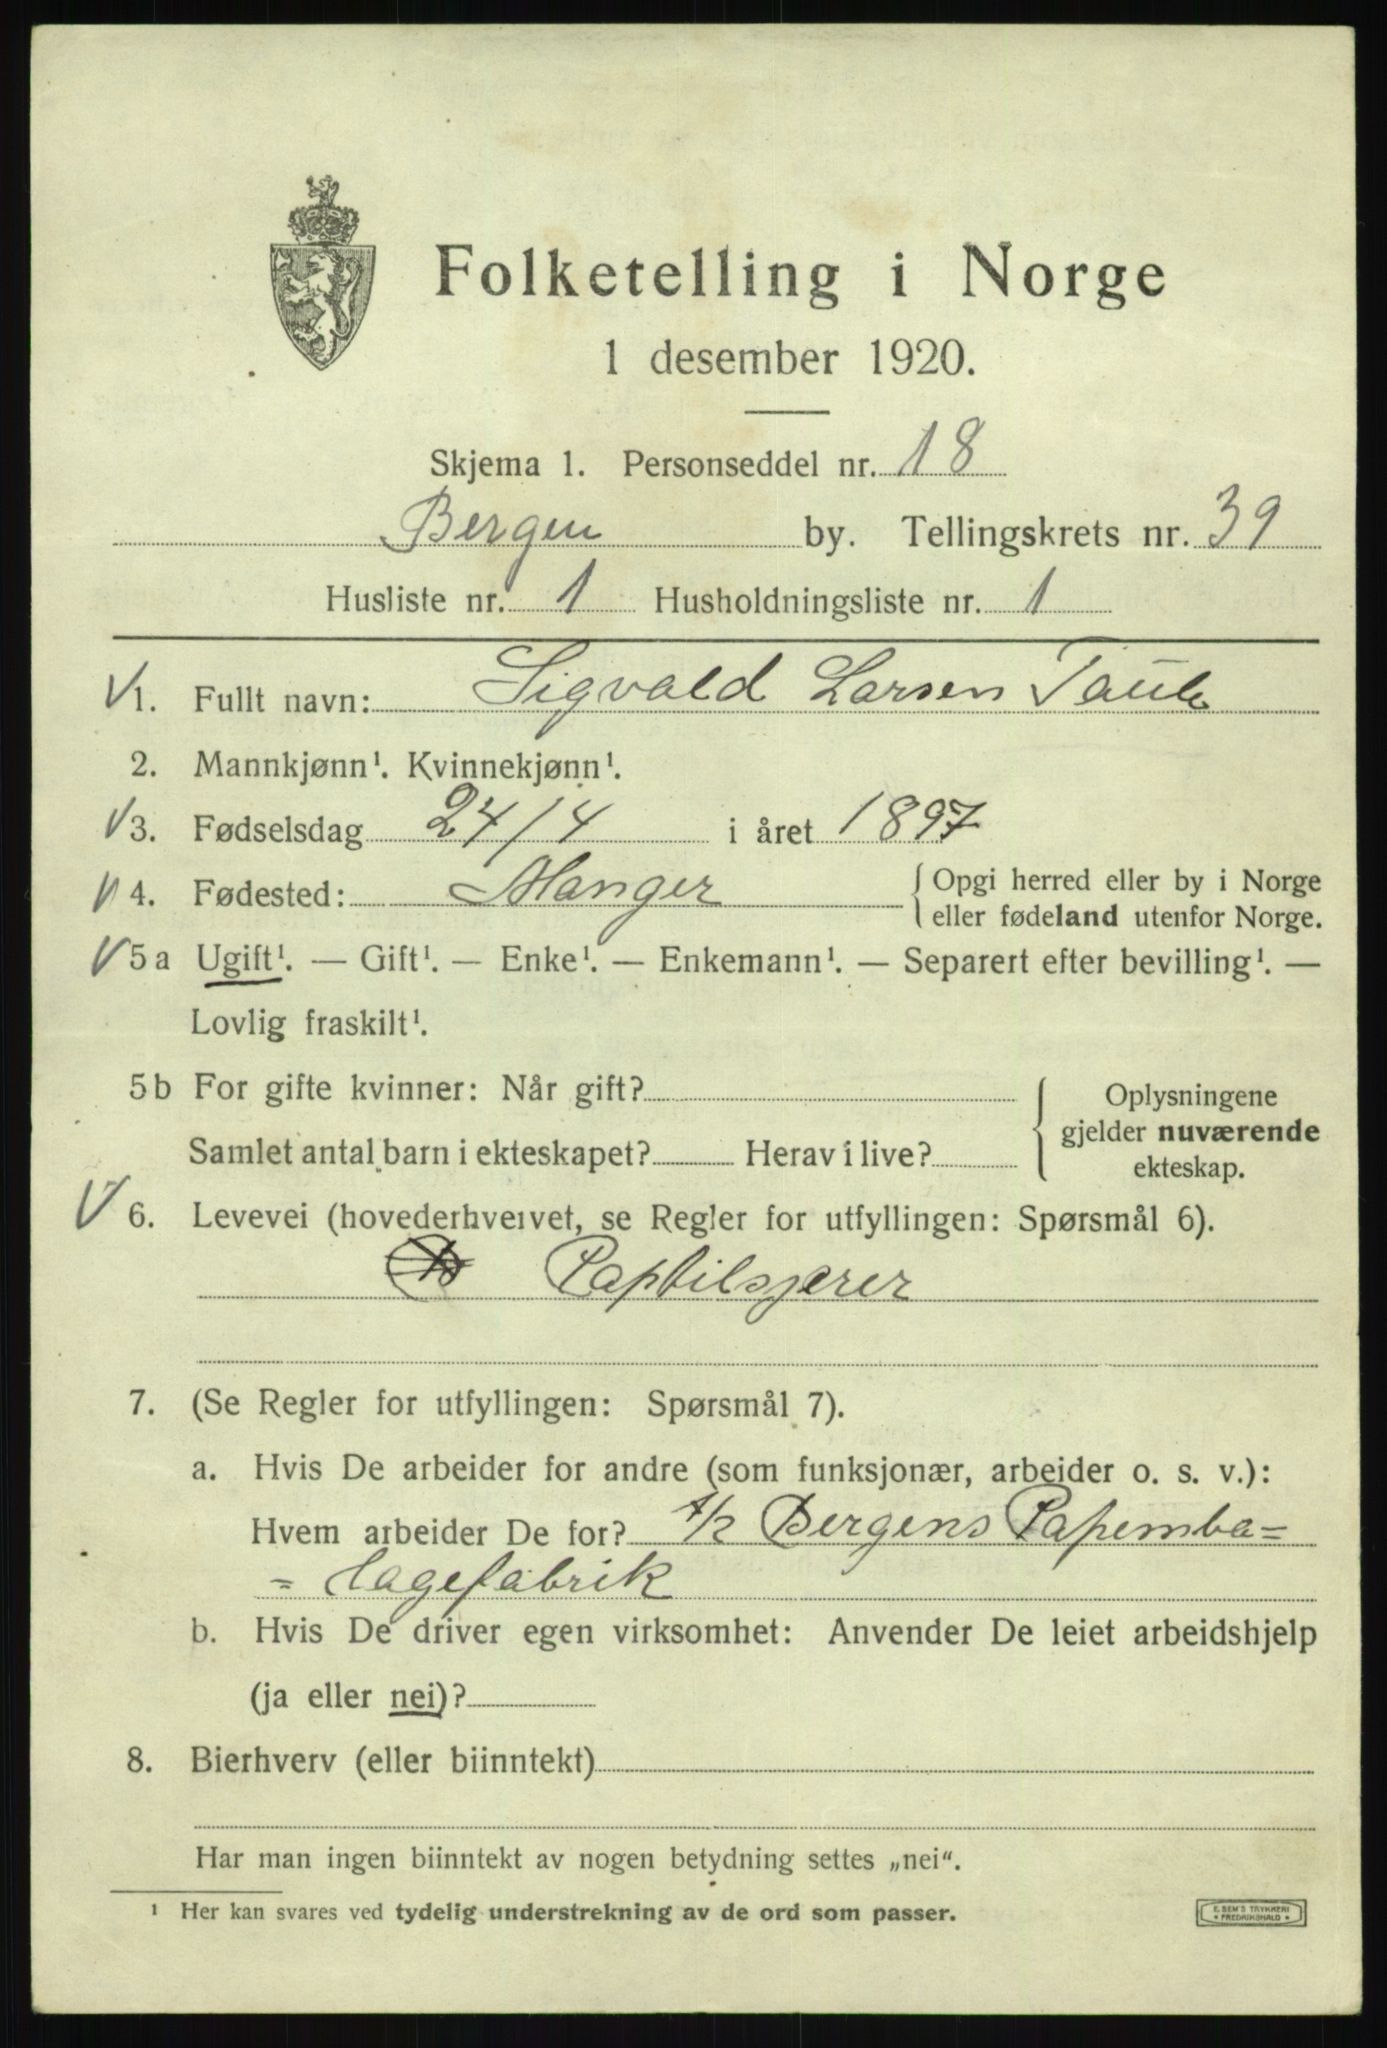 Folketelling i Norge
1 desember 1920.
Skjema 1. Personseddel nr. 18
Bergen by. Tellingskrets nr. 39
Husliste nr. 1 Husholdningsliste nr. 1
1. Fullt navn: Sigvald Larsen Taule
2. Mannkjønn¹. Kvinnekjønn¹.
3. Fødselsdag 24/4 i året 1897
4. Fødested: Manger { Opgi herred eller by i Norge
eller fødeland utenfor Norge.
5a Ugift¹. — Gift¹. — Enke¹. — Enkemann¹. — Separert efter bevilling¹. —
Lovlig fraskilt¹.
5b For gifte kvinner: Når gift? { Oplysningene
gjelder nuværende
ekteskap.
Samlet antal barn i ekteskapet? Herav i live?
6. Levevei (hovederhvervet, se Regler for utfyllingen: Spørsmål 6).
Paptilsjerer
7. (Se Regler for utfyllingen: Spørsmål 7).
a. Hvis De arbeider for andre (som funksjonær, arbeider o. s. v.):
Hvem arbeider De for? Bergens Papemba=
= lagefabrik
b. Hvis De driver egen virksomhet: Anvender De leiet arbeidshjelp
(ja eller nei)?
8. Bierhverv (eller biinntekt)
Har man ingen biinntekt av nogen betydning settes „nei“.
¹ Her kan svares ved tydelig understrekning av de ord som passer.
E. SEM'S TRYKKERI
• FREDRIKSHALD •